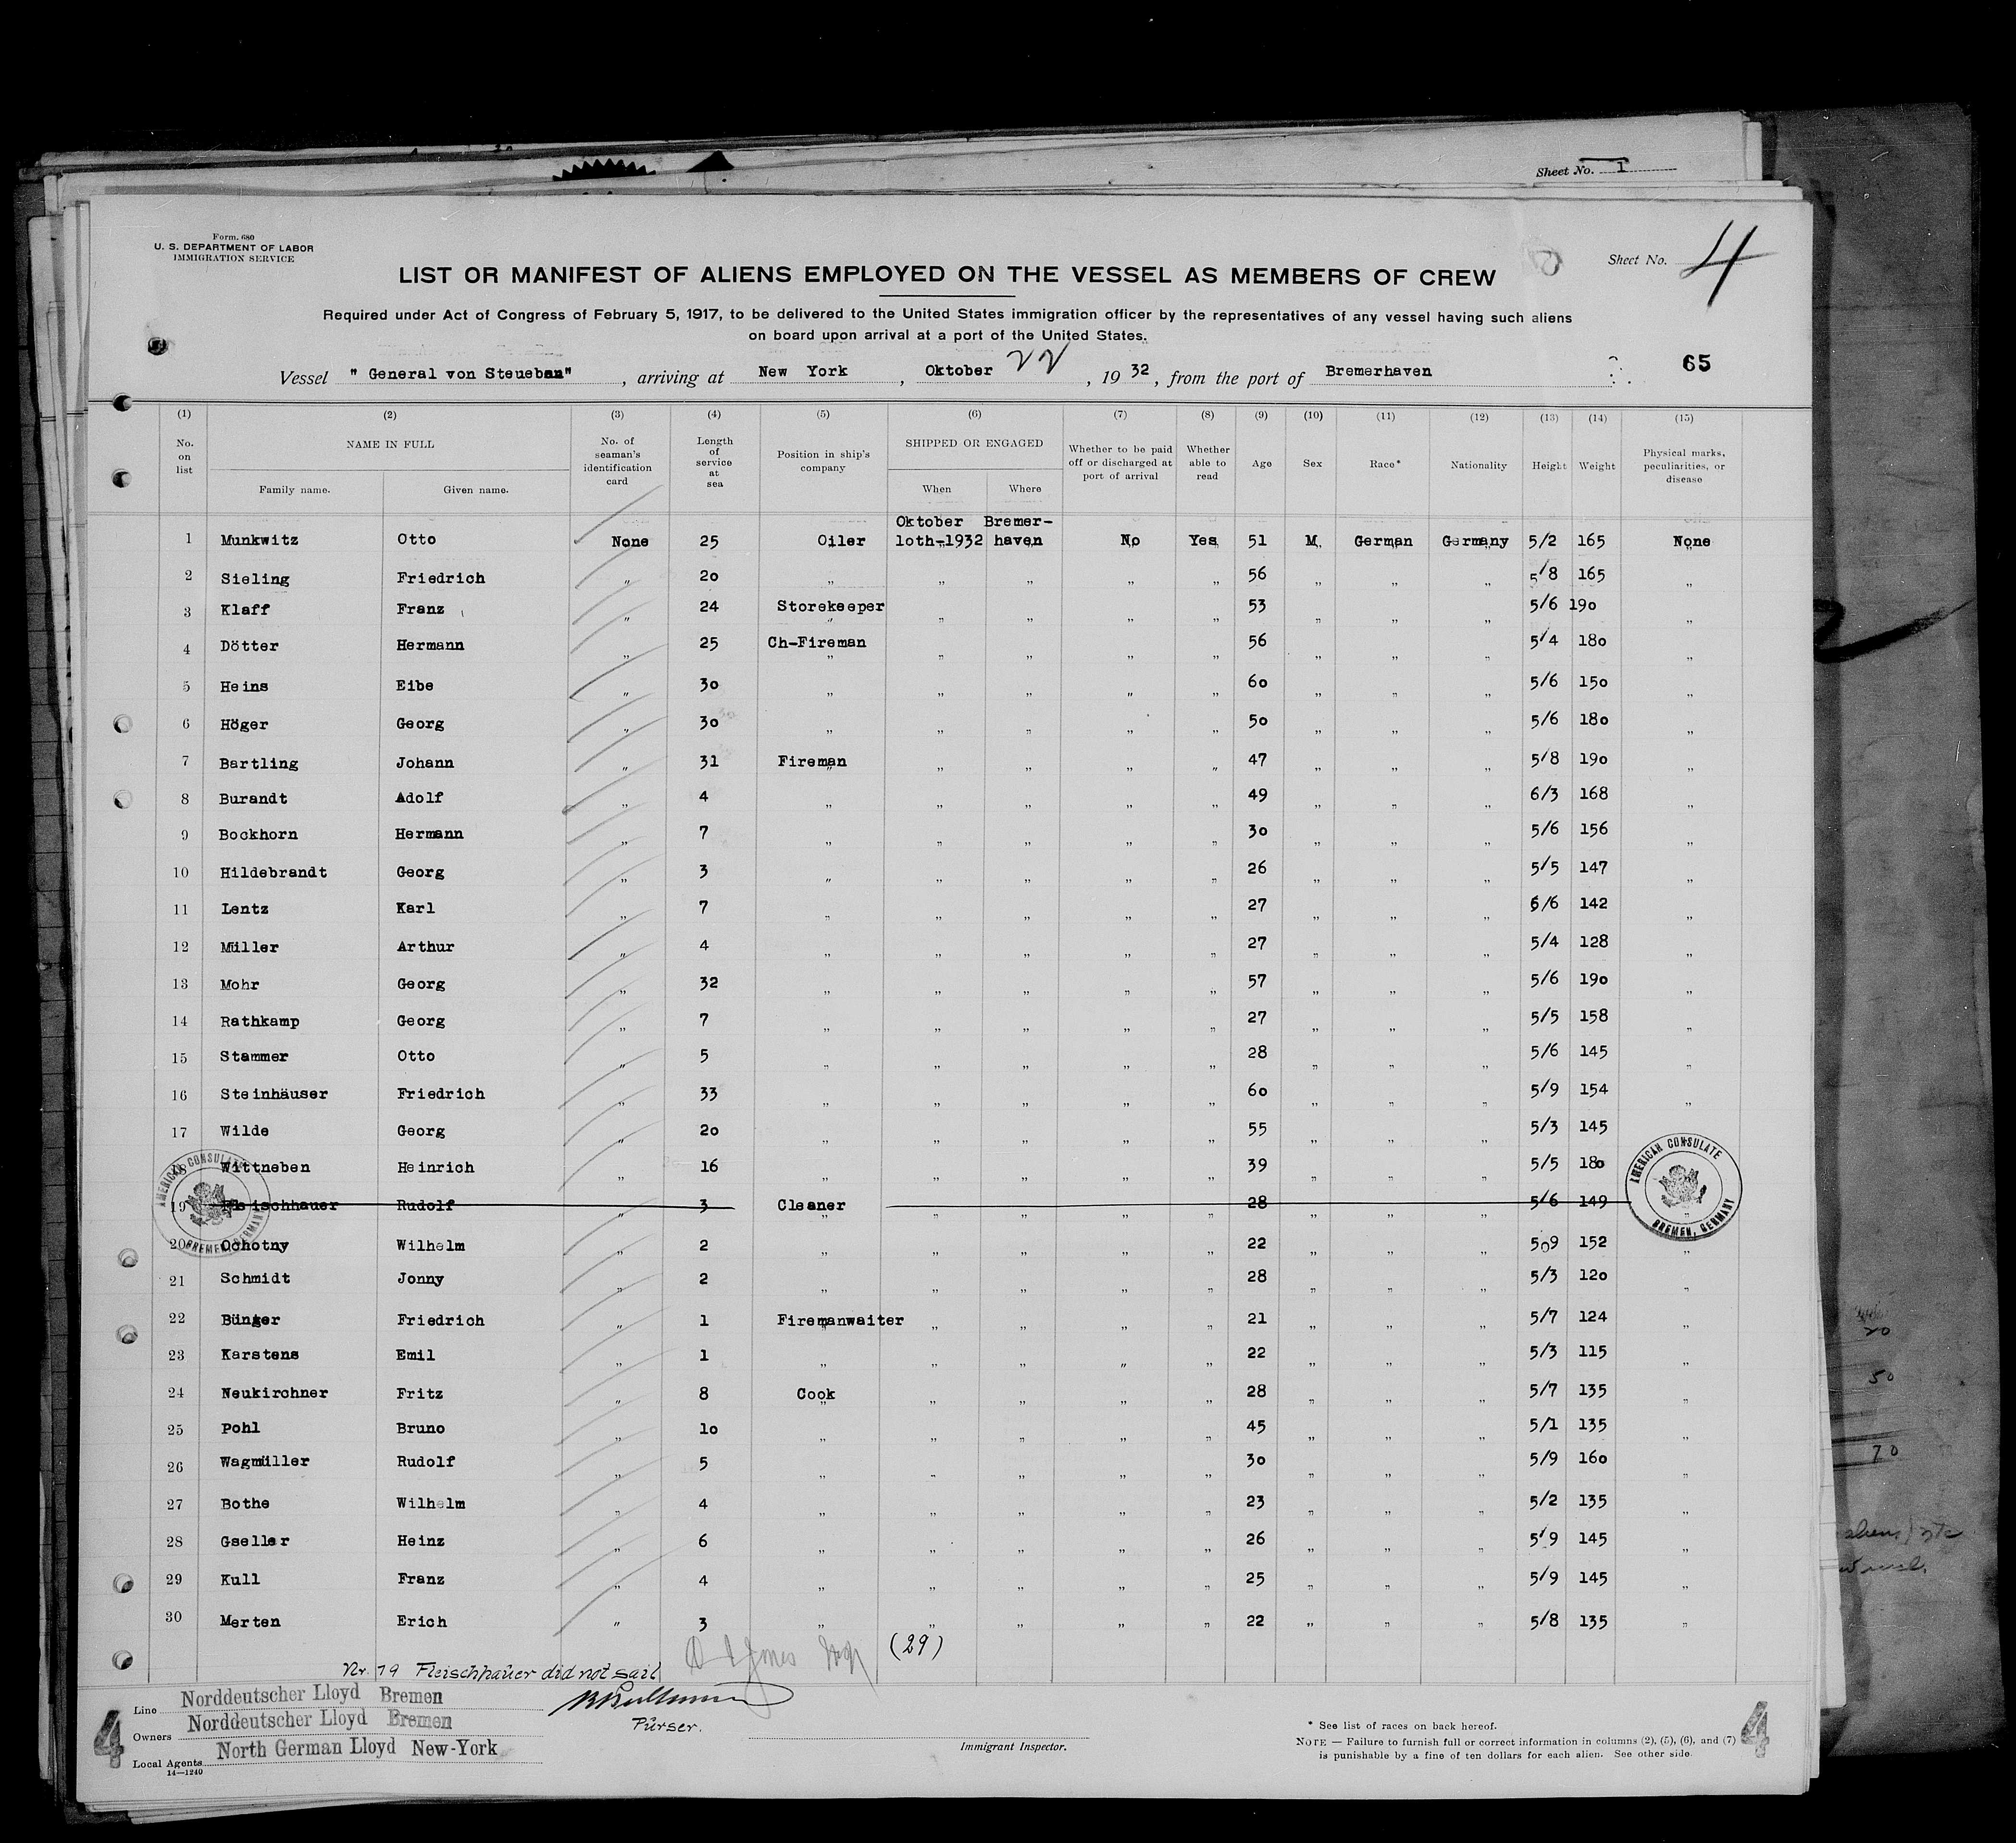 Sheet No. 1
Form. 680
U. S. DEPARTMENT OF LABOR
IMMIGRATION SERVICE
Sheet No. 4
LIST OR MANIFEST OF ALIENS EMPLOYED ON THE VESSEL AS MEMBERS OF CREW
Required under Act of Congress of February 5, 1917, to be delivered to the United States immigration officer by the representatives of any vessel having such aliens
on board upon arrival at a port of the United States.
Vessel " General von Steueben" , arriving at New York , Oktober 22 , 19 32 , from the port of Bremerhaven
65
(1) (2) (3) (4) (5) (6) (7) (8) (9) (10) (11) (12) (13) (14) (15)
No. on list NAME IN FULL Family name. Given name. No. of seaman's identification card Length of service at sea Position in ship's company SHIPPED OR ENGAGED When Where Whether to be paid off or discharged at port of arrival Whether able to read Age Sex Race* Nationality Height Weight Physical marks, peculiarities, or disease
Oktober Bremer-
1 Munkwitz Otto None 25 Oiler loth-1932 haven No Yes 51 M German Germany 5/2 165 None
2 Sieling Friedrich " 20 " " " " " 56 " " " 5/8 165 "
3 Klaff Franz " 24 Storekeeper " " " " " 53 " " " 5/6 190 "
4 Dötter Hermann " 25 Ch-Fireman " " " " " 56 " " " 5/4 180 "
5 Heins Eibe " 30 " " " " " 60 " " " 5/6 150 "
6 Höger Georg " 30 " " " " " 50 " " " 5/6 180 "
7 Bartling Johann " 31 Fireman " " " " " 47 " " " 5/8 190 "
8 Burandt Adolf " 4 " " " " " 49 " " " 6/3 168 "
9 Bockhorn Hermann " 7 " " " " " 30 " " " 5/6 156 "
10 Hildebrandt Georg " 3 " " " " " 26 " " " 5/5 147 "
11 Lentz Karl " 7 " " " " " 27 " " " 6/6 142 "
12 Müller Arthur " 4 " " " " " 27 " " " 5/4 128 "
13 Mohr Georg " 32 " " " " " 57 " " " 5/6 190 "
14 Rathkamp Georg " 7 " " " " " 27 " " " 5/5 158 "
15 Stammer Otto " 5 " " " " " 28 " " " 5/6 145 "
16 Steinhäuser Friedrich " 33 " " " " " 60 " " " 5/9 154 "
17 Wilde Georg " 20 " " " " " 55 " " " 5/3 145 "
18 Wittneben Heinrich " 16 " " " " " 39 " " " 5/5 180
19 Fleischhauer Rudolf " 3 Cleaner " " " " " 28 " " " 5/6 149 "
20 Ochotny Wilhelm " 2 " " " " " 22 " " " 509 152 "
21 Schmidt Jonny " 2 " " " " " 28 " " " 5/3 120 "
22 Bünger Friedrich " 1 Firemanwaiter " " " " " 21 " " " 5/7 124 "
23 Karstens Emil " 1 " " " " " 22 " " " 5/3 115 "
24 Neukirchner Fritz " 8 Cook " " " " " 28 " " " 5/7 135 "
25 Pohl Bruno " 10 " " " " " 45 " " " 5/1 135 "
26 Wagmüller Rudolf " 5 " " " " " 30 " " " 5/9 160 "
27 Bothe Wilhelm " 4 " " " " " 23 " " " 5/2 135 "
28 Gseller Heinz " 6 " " " " " 26 " " " 5/9 145 "
29 Kull Franz " 4 " " " " " 25 " " " 5/9 145 "
30 Merten Erich " 3 " " " " " 22 " " " 5/8 135 "
AMERICAN CONSULATE
BREMEN, GERMANY
AMERICAN CONSULATE
BREMEN, GERMANY
(29)
Nr. 19 Fleischhauer did not sail
Line Norddeutscher Lloyd Bremen
Owners Norddeutscher Lloyd Bremen
Local Agents North German Lloyd New-York
14—1240
Purser.
Immigrant Inspector.
* See list of races on back hereof.
NOTE — Failure to furnish full or correct information in columns (2), (5), (6), and (7)
is punishable by a fine of ten dollars for each alien. See other side.
4
4
20
50
70